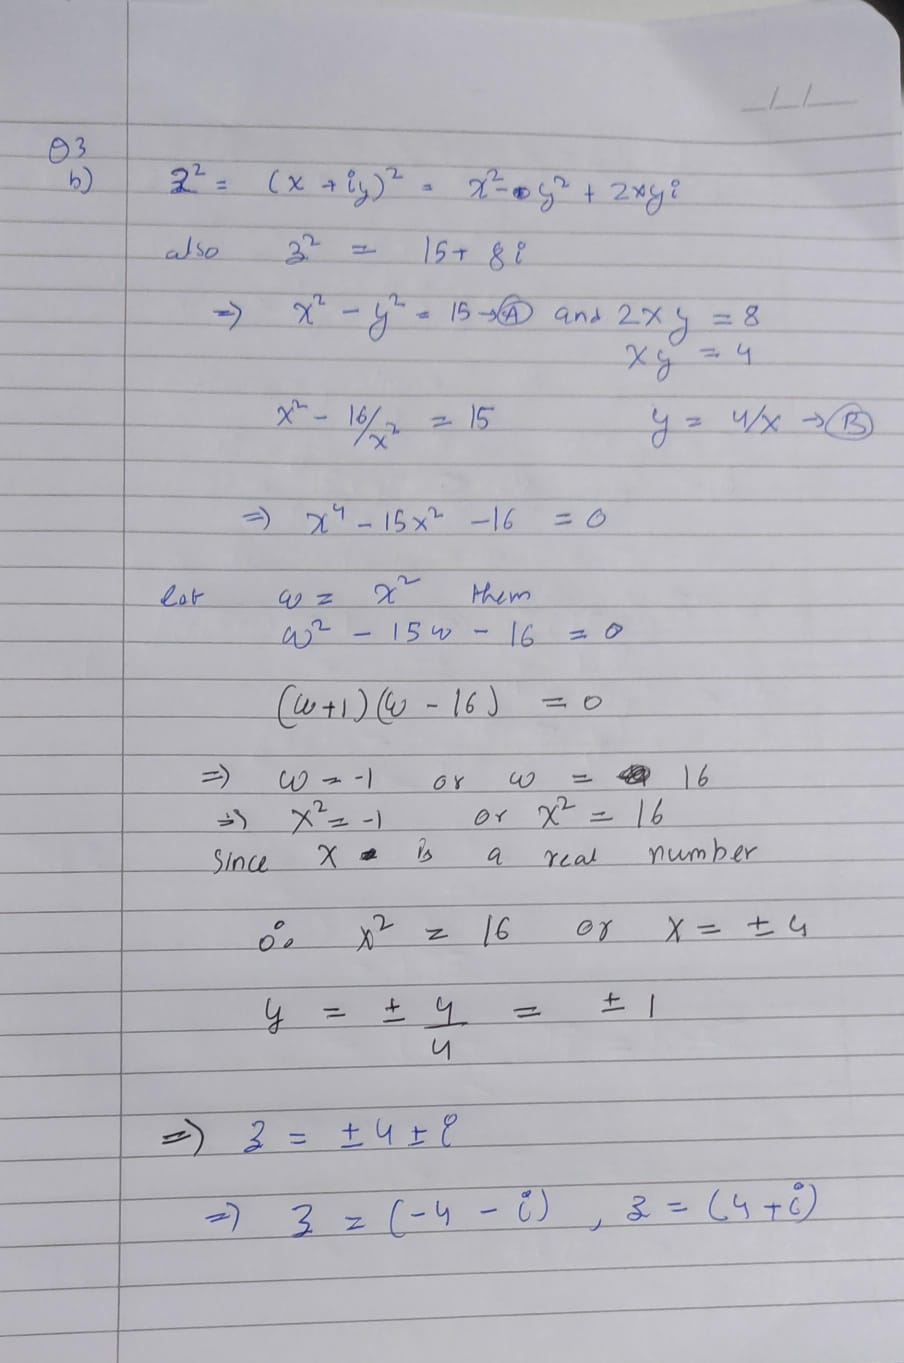 _/_/_
Q3
b) z² = (x + iy)² = x² - y² + 2xyi
also z² = 15 + 8i
⇒ x² - y² = 15 → Ⓐ and 2xy = 8
xy = 4
x² - 16/x² = 15 y = 4/x → Ⓑ
⇒ x⁴ - 15x² - 16 = 0
let ω = x² them
ω² - 15ω - 16 = 0
(ω+1)(ω - 16) = 0
⇒ ω = -1 or ω = 16
⇒ x² = -1 or x² = 16
Since x is a real number
∴ x² = 16 or x = ± 4
y = ± 4/4 = ± 1
⇒ z = ± 4 ± i
⇒ z = (-4 - i), z = (4 + i)